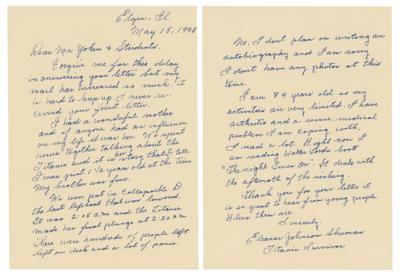 Elgin, Il.
May 15, 1998
Dear Mr Yoker & Students.
Forgive me for this delay
in answering your letter but my
mail has increased so much, it
is hard to keep up. I never re
ceived your first letter.
I had a wonderful mother
and if anyone had an influence
on my life it was her. We spent
hours together talking about the
Titanic and it is her story that I tell
I was just 1½ years old at the time
My brother was four.
We were put in Collapsible D
the last lifeboat that was lowered.
It was 2:05 a.m and the Titanic
made her final plunge at 2:20 a.m
There were hundreds of people left
left on deck and a lot of panic.
No. I don't plan on writing an
autobiography and I am sorry
I don't have any photos at this
time.
I am 84 years old so my
activities are very limited. I have
arthritis and a serious medical
problem I am coping with.
I read a lot. Right now I
am reading Walter Lords book
"The night lives On". It deals with
the aftermath of the sinking.
Thank you for your letter it
is so great to hear from young people.
Bless them all.
Sincerely,
Eleanor Johnson Shuman
Titanic Survivor